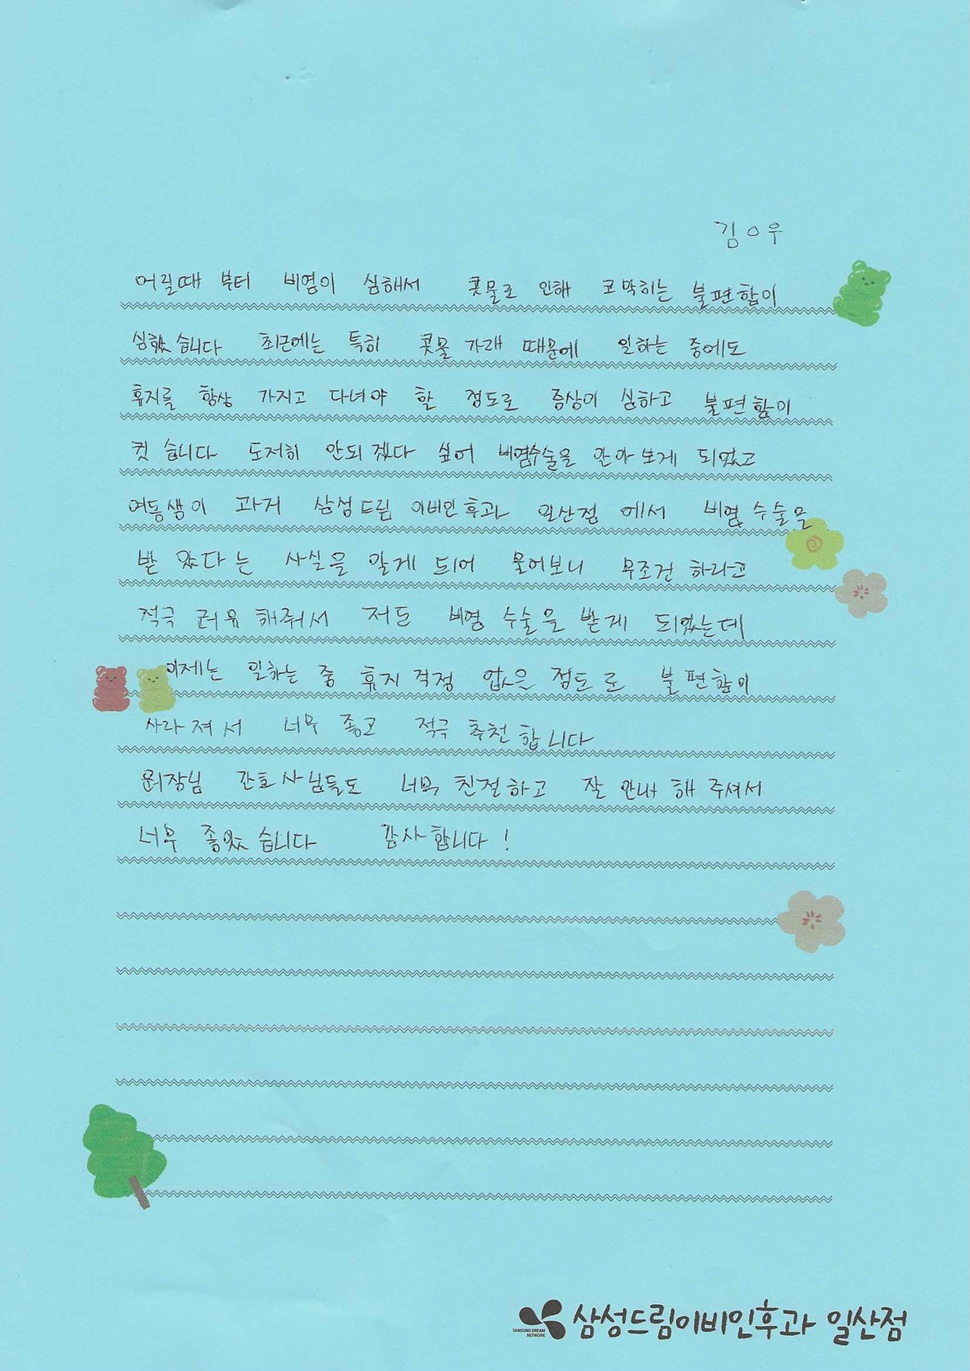 김ㅇ우
어릴때 부터 비염이 심해서 콧물로 인해 코막히는 불편함이
심했습니다 최근에는 특히 콧물 가래 때문에 일하는 중에도
휴지를 항상 가지고 다녀야 할 정도로 증상이 심하고 불편함이
컷습니다 도저히 안되겠다 싶어 비염수술을 알아보게 되었고
여동생이 과거 삼성드림 이비인후과 일산점 에서 비염수술을
받았다는 사실을 알게되어 물어보니 무조건 하라고
적극 권유 해줘서 저도 비염 수술을 받게 되었는데
이제는 일하는 중 휴지 걱정 없은 정도로 불편함이
사라져서 너무 좋고 적극 추천합니다
원장님 간호사님들도 너무 친절하고 잘 안내 해 주셔서
너무 좋았습니다 감사합니다!
SAMSUNG DREAM NETWORK
삼성드림이비인후과 일산점